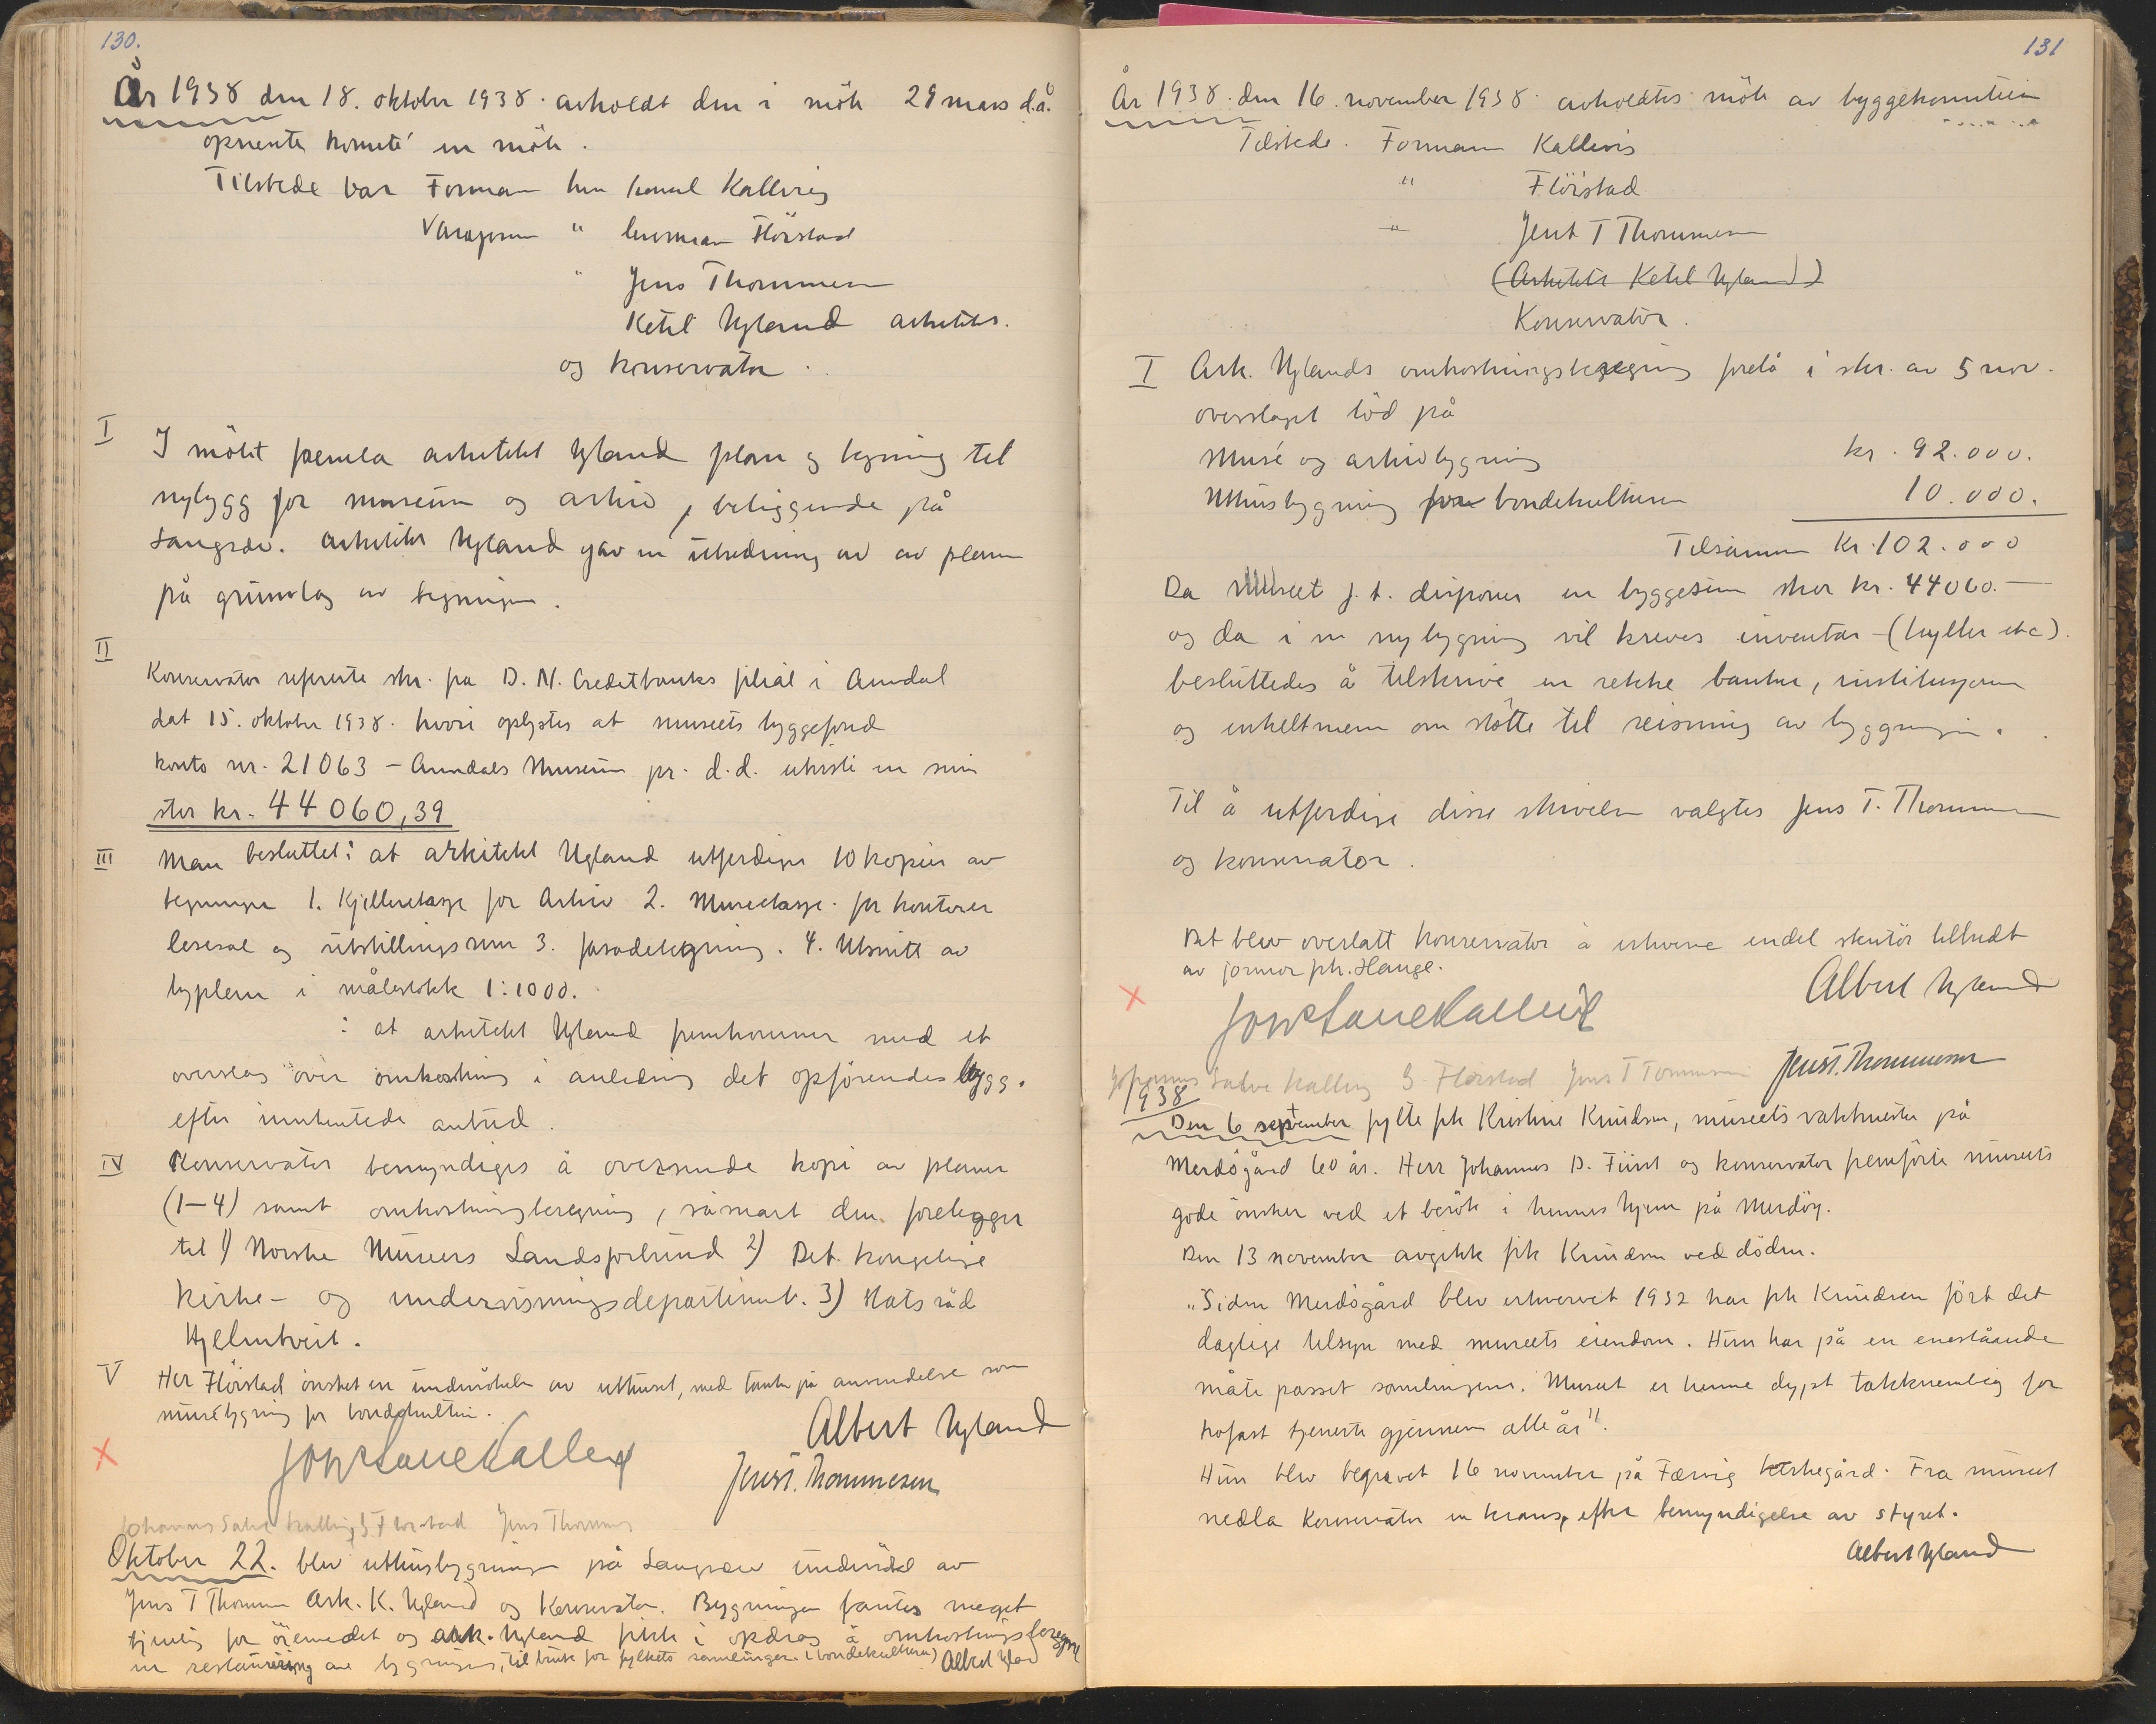 130.
År 1938 den 18. oktober 1938. avholdt den i möte 29 mars d.å.
opnevnte komité en möte.
Tilstede var Formann herr konsul Kallevig
Varaform " lensmann Flörstad
" Jens Thommesen
Ketil Ugland arkitekt.
og konservator.
I
I mötet fremla arkitekt Ugland plan og tegning til
nybygg for museum og arkiv, beliggende på
Langsæ. Arkitekt Ugland gav en utredning av av planen
på grunnlag av tegningen.
II
Konservator refererte skr. fra D. N. Creditbanks filial i Arendal
dat 15. oktober 1938. hvori oplystes at museets byggefond
konto nr. 21063 - Arendals Museum pr. d.d. utviste en sum
stor kr. 44060,39
III Man besluttet: at arkitekt Ugland utferdiger 10 kopier av
tegninger 1. Kjelleretasje for Arkiv 2. Museetasje for kontorer
lesesal og utstillingsrum 3. fasadetegning. 4. Utsnitt av
byplan i målestokk 1:1000.
: at arkitekt Ugland fremkommer med et
overslag over omkostning i anledning det opförendes bygg.
efter innhentede anbud.
IV Konservator bemyndiges å oversende kopi av planer
(1-4) samt omkostningsberegning, såsnart den foreligger
til 1) Norske Museers Landsforbund 2) Det kongelige
kirke- og undervisningsdepartement. 3) Statsråd
Hjelmtveit.
V Her Flörstad önsket en undersökelse av uthuset, med tanke på anvendelse som
musébygning for bondekultur.
Albert Ugland
Joh Salve Kallevig
Jens T. Thommesen
Johannes Salve Kallevig G Flørstad Jens Thommesen
Oktober 22. blev uthusbygningen på Langsæ undersökt av
Jens T Thommesen Ark. K. Ugland og Konservator. Bygningen fantes meget
tjenlig for öiemedet og ark. Ugland fikk i opdrag å omkostningsberegne
en restaurering av bygningen, til bruk for fylkets samlinger. (bondekulturen) Albert Ugland
131
År 1938. den 16. november 1938 avholdtes möte av byggekomiteen
Tilstede. Formann Kallevig
" Flöistad
" Jens T Thommesen
(Arkitekt Ketil Ugland)
Konservator.
I Ark. Uglands omkostningsberegning forelå i skr. av 5 nov.
overslaget löd på
Musé og arkivbygning kr. 92.000.
Uthusbygning for bondekulturen 10.000.
Tilsammen Kr. 102.000
Da Museet f. t. disponer en byggesum stor kr. 44060.—
og da i en nybygning vil kreves inventar - (hyller etc).
besluttedes å tilskrive en rekke banker, institusjoner
og enkeltmenn om stötte til reisning av byggningen.
Til å utferdige disse skrivelser valgtes Jens T. Thommesen
og konservator.
Det blev overlatt konservator å erhverve endel skrifter tilbudt
av jormor frk. Hauge.
Albert Ugland
Joh Salve Kallevig
Johannes Salve Kallevig G Flörstad Jens T Tommesen Jens T. Thommesen
1938
Den 6 september fylte frk Kristine Knudsen, museets vaktmester på
Merdögård 60 år. Herr Johannes D. Fürst og konservator fremförte museets
gode önsker ved et besök i hennes hjem på Merdöy.
Den 13 november avgikk frk Knudsen ved döden.
"Siden Merdögård blev erhvervet 1932 har frk Knudsen fört det
daglige tilsyn med museets eiendom. Hun har på en enestående
måte passet samlingene. Museet er henne dypt takknemlig for
trofast tjeneste gjennem alle år".
Hun blev begravet 16 november på Færvig kirkegård. Fra museet
nedla Konservator en krans, efter bemyndigelse av styret.
Albert Ugland